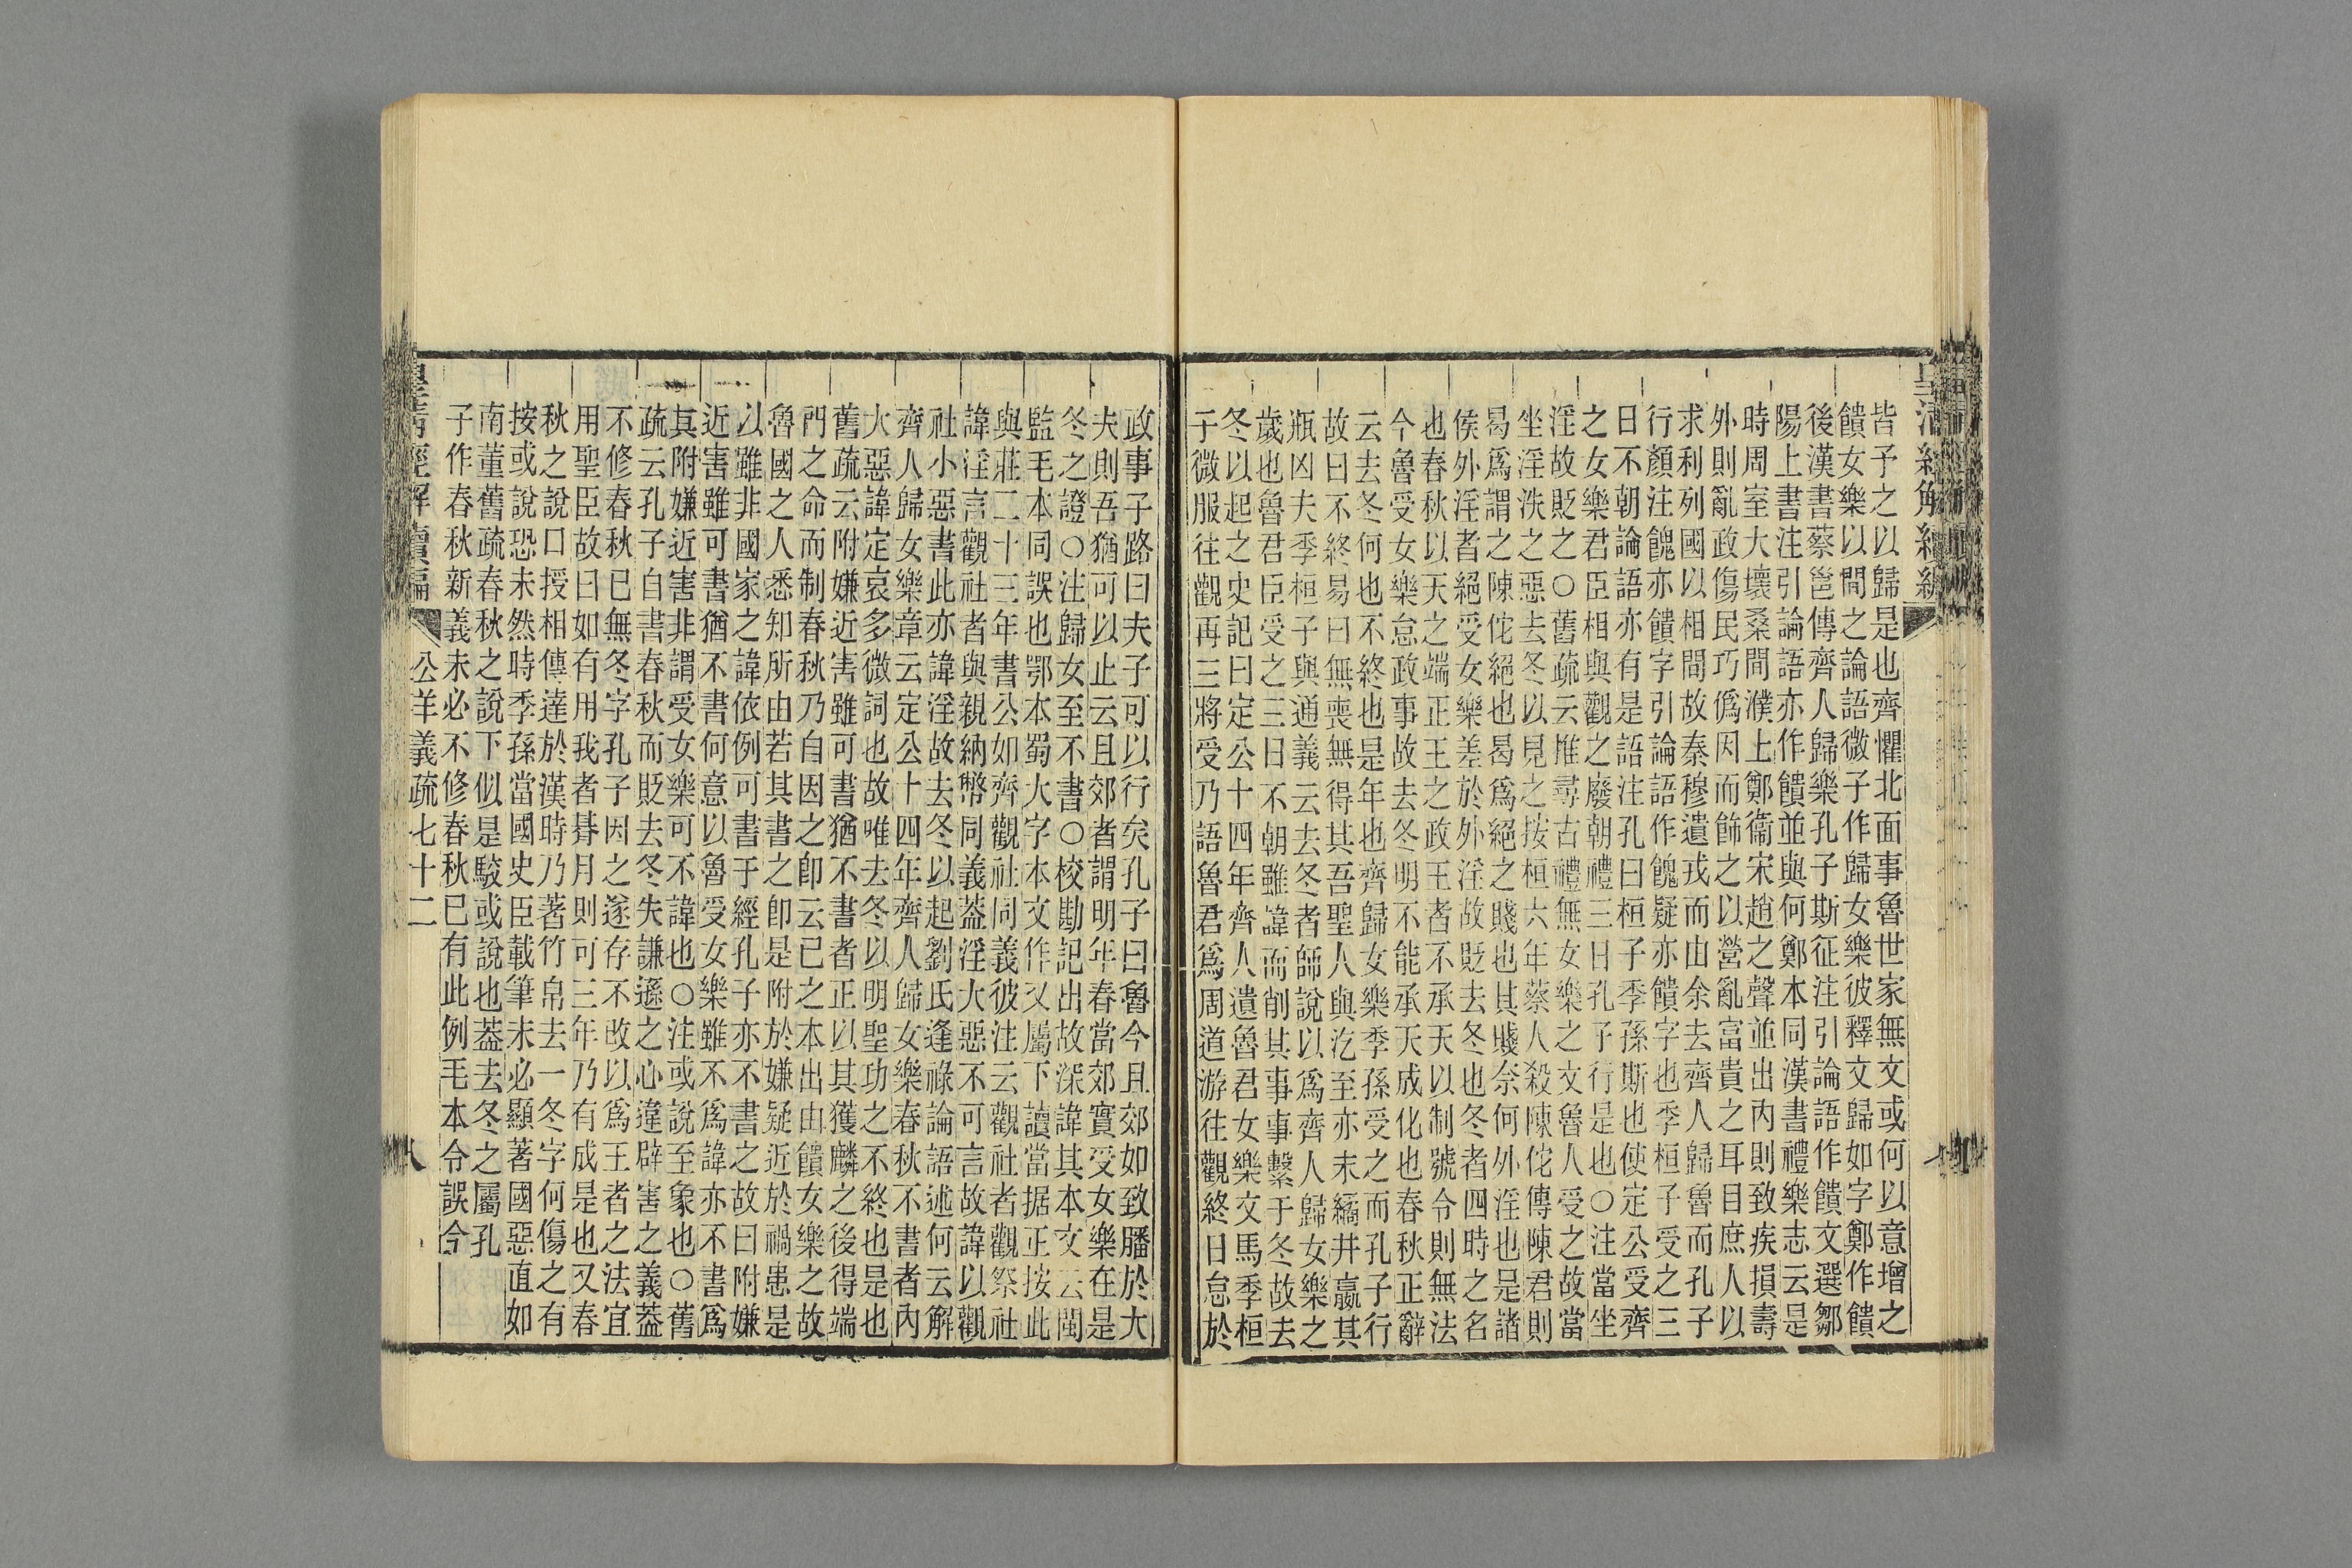 皆予之以歸是也齊懼北面事魯世家無文或何以意增之
饋女樂以間之論語微子作歸女樂彼釋文歸如字鄭作饋
後漢書蔡邕傳齊人歸樂孔子斯征注引論語作饋文選鄒
陽上書注引論語亦作饋並與何鄭本同漢書禮樂志云是
時周室大壞桑間濮上鄭衞宋趙之聲並出內則致疾損壽
外則亂政傷民巧僞因而飾之以營亂富貴之耳目庶人以
求利列國以相間故秦穆遺戎而由余去齊人歸魯而孔子
行顏注餽亦饋字引論語作餽疑亦饋字也季桓子受之三
日不朝論語亦有是語注孔曰桓子季孫斯也使定公受齊
之女樂君臣相與觀之廢朝禮三日孔子行是也○注當坐
淫故貶之○舊疏云推尋古禮無女樂之文魯人受之故當
坐淫泆之惡去冬以見之按桓六年蔡人殺陳佗傳陳君則
曷爲謂之陳佗絕也曷爲絕之賤也其賤奈何外淫也是諸
侯外淫者絕受女樂差於外淫故貶去冬也冬者四時之名
也春秋以天之端正王之政王者不承天以制號令則無法
今魯受女樂怠政事故去冬明不能承天成化也春秋正辭
云去冬何也不終也是年也齊歸女樂季孫受之而孔子行
故曰不終易曰無喪無得其吾聖人與汔至亦未繘井羸其
瓶凶夫季桓子與通義云去冬者師說以爲齊人歸女樂之
歲也魯君臣受之三日不朝雖諱而削其事事繫于冬故去
冬以起之史記曰定公十四年齊人遺魯君女樂文馬季桓
于微服往觀再三將受乃語魯君爲周道游往觀終日怠於
政事子路曰夫子可以行矣孔子曰魯今且郊如致膰於大
夫則吾猶可以止云且郊者謂明年春當郊實受女樂在是
冬之證○注歸女至不書○校勘記出故深諱其本文云閩
監毛本同誤也鄂本蜀大字本文作又屬下讀當据正按此
與莊二十三年書公如齊觀社同義彼注云觀社者觀祭社
諱淫言觀社者與親納幣同義葢淫大惡不可言故諱以觀
社小惡書此亦諱淫故去冬以起劉氏逢祿論語述何云解
齊人歸女樂章云定公十四年齊人歸女樂春秋不書者內
大惡諱定哀多微詞也故唯去冬以明聖功之不終也是也
舊疏云附嫌近害雖可書猶不書者正以其獲麟之後得端
門之命而制春秋乃自因之卽云已之本出由饋女樂之故
魯國之人悉知所由若其書之卽是附於嫌疑近於禍患是
以雖非國家之諱依例可書于經孔子亦不書之故曰附嫌
近害雖可書猶不書何意以魯受女樂雖不爲諱亦不書爲
其附嫌近害非謂受女樂可不諱也○注或說至象也○舊
疏云孔子自書春秋而貶去冬失謙遜之心違辟害之義葢
不修春秋已無冬字孔子因之遂存不改以爲王者之法宜
用聖臣故曰如有用我者朞月則可三年乃有成是也又春
秋之說口授相傳達於漢時乃著竹帛去一冬字何傷之有
按或說恐未然時季孫當國史臣載筆未必顯著國惡直如
南董舊疏春秋之說下似是駮或說也葢去冬之屬孔
子作春秋新義未必不修春秋已有此例毛本令誤今
皇清經解續編
公羊義疏七十二
八